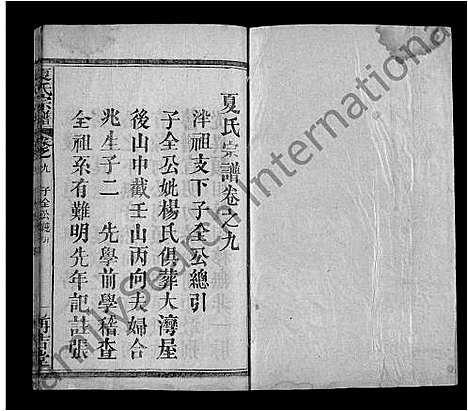 夏氏宗譜卷之九
泮祖支下子全公總引
子全公妣楊氏俱葬大灣屋
後山中截壬山丙向夫婦合
兆生子二 先學前學稽查
全祖系有難明先年記註張
夏氏宗譜 卷之九 子全公
familysearch International